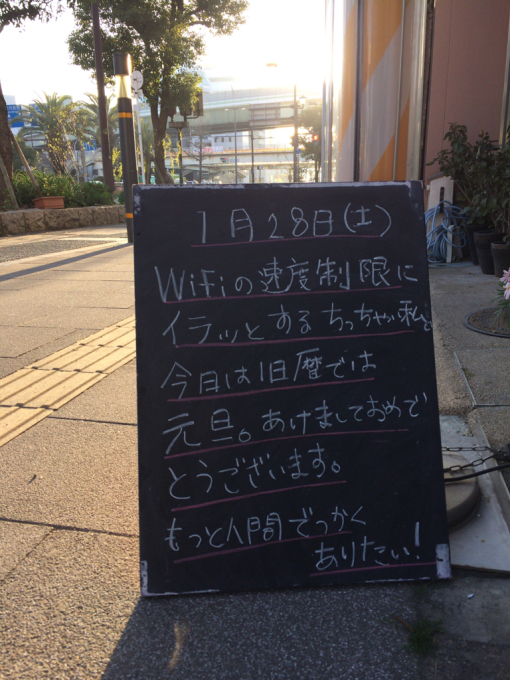 1月28日(土)
WiFiの速度制限に
イラッとするちっちゃい私。
今日は旧暦では
元旦。あけましておめで
とうございます。
もっと人間でっかく
ありたい!